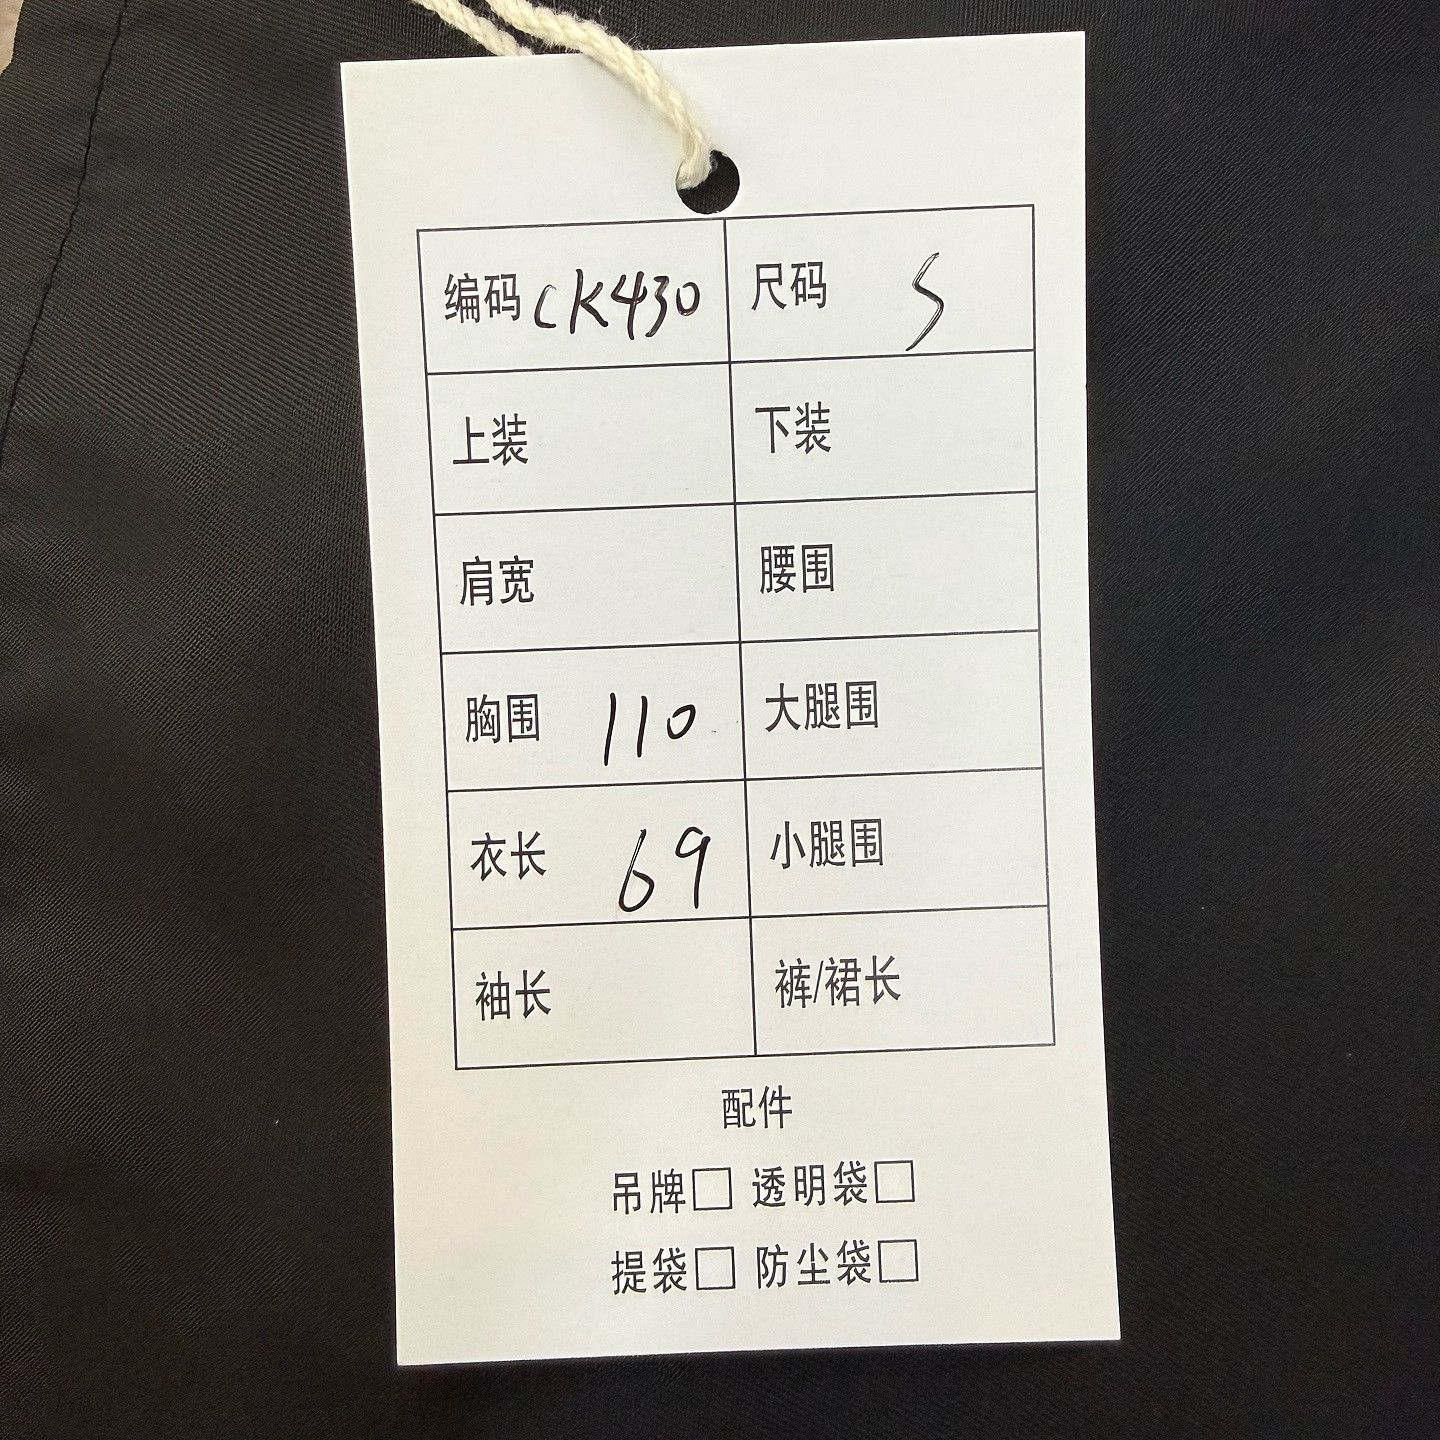 编码 CK430 尺码 S
上装 下装
肩宽 腰围
胸围 110 大腿围
衣长 69 小腿围
袖长 裤/裙长
配件
吊牌□ 透明袋□
提袋□ 防尘袋□